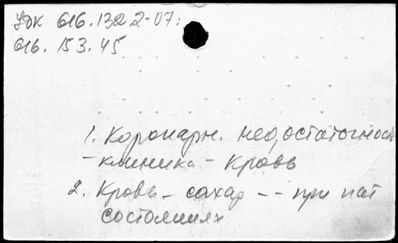 УДК 616.132 2-07:
616.153.45
1. Коронарн. недостаточность
- клиника - кровь
2. Кровь - сахар -- при пат
состояниях